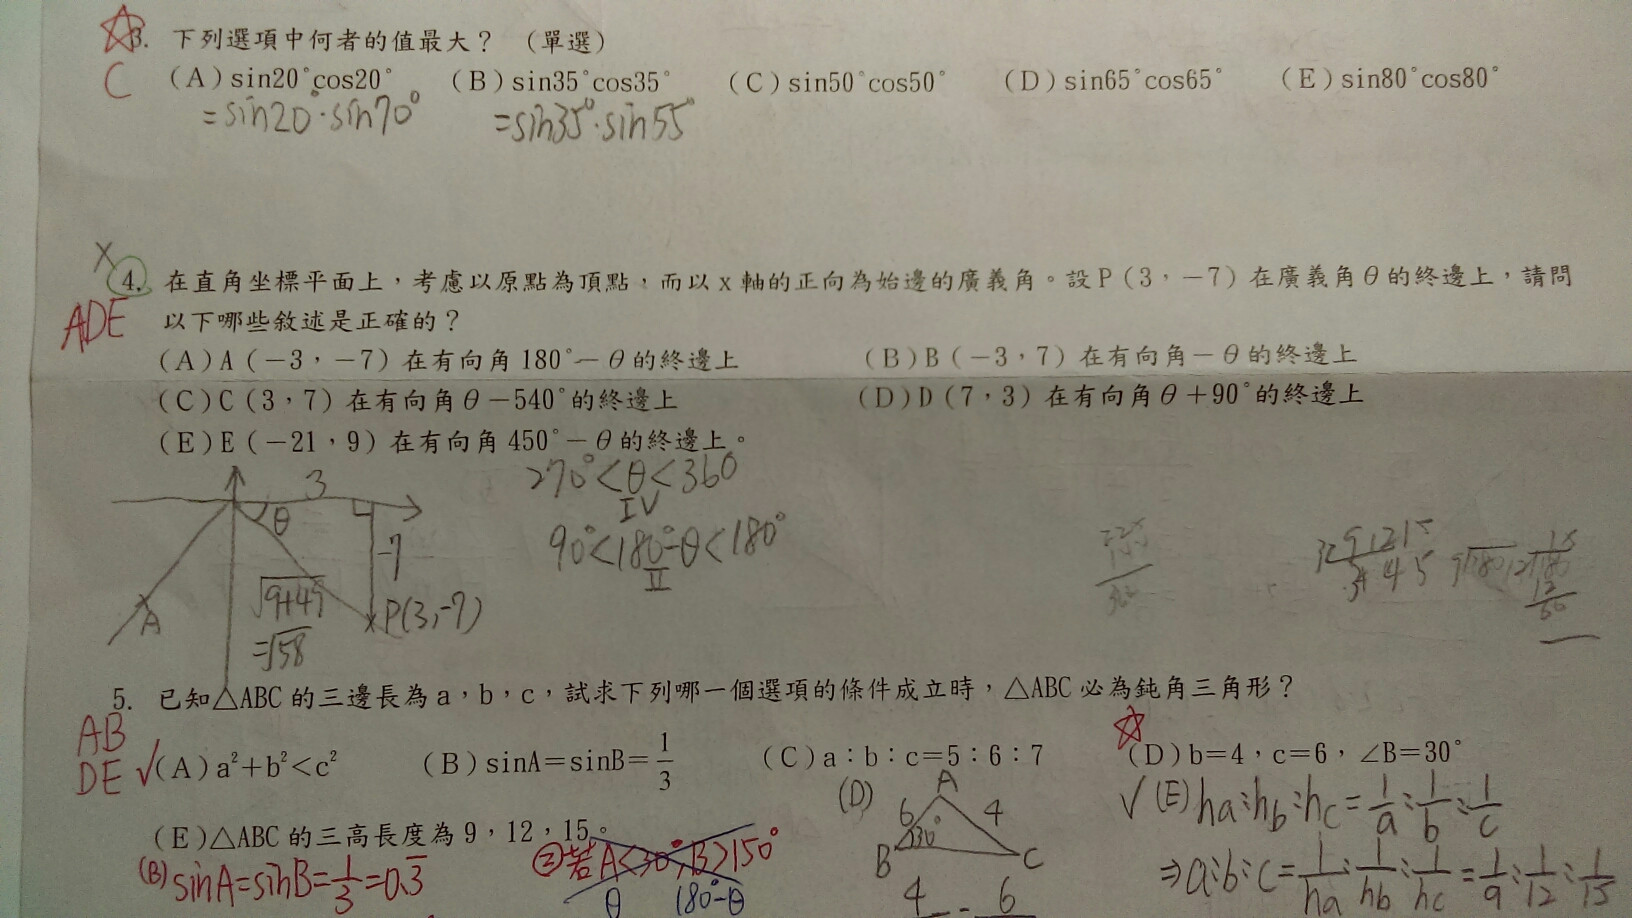 3. 下列選項中何者的值最大？（單選）
C （A）sin20°cos20° （B）sin35°cos35° （C）sin50°cos50° （D）sin65°cos65° （E）sin80°cos80°
=sin20°·sin70° =sin35°·sin55°
4. 在直角坐標平面上，考慮以原點為頂點，而以x軸的正向為始邊的廣義角。設P（3，－7）在廣義角θ的終邊上，請問
ADE 以下哪些敘述是正確的？
（A）A（－3，－7）在有向角180°－θ的終邊上 （B）B（－3，7）在有向角－θ的終邊上
（C）C（3，7）在有向角θ－540°的終邊上 （D）D（7，3）在有向角θ＋90°的終邊上
（E）E（－21，9）在有向角450°－θ的終邊上。
3 270°<θ<360°
θ IV
-7 90°<180°-θ<180°
II
√9+49
A P(3,-7)
=√58
5. 已知△ABC的三邊長為a，b，c，試求下列哪一個選項的條件成立時，△ABC必為鈍角三角形？
AB
DE ✓（A）a²＋b²＜c² （B）sinA＝sinB＝1/3 （C）a：b：c＝5：6：7 （D）b＝4，c＝6，∠B＝30°
(D) A ✓(E) ha:hb:hc=1/a:1/b:1/c
6 4
（E）△ABC的三高長度為9，12，15。
30°
B C
(B) sinA=sinB=1/3=0.3̅ ②若A<30°,B>150° ⇒a:b:c=1/ha:1/hb:1/hc=1/9:1/12:1/15
θ 180°-θ 4 = 6